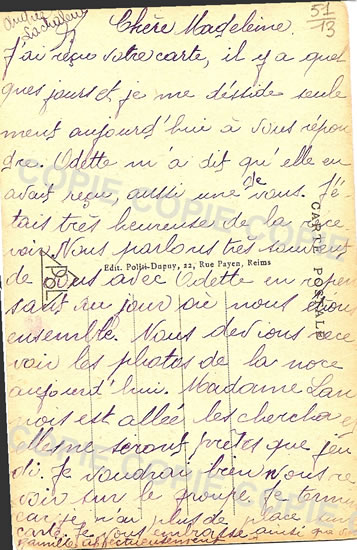 Chère Madeleine.
51
13
J'ai reçu votre carte, il y a quel
ques jours et je me déside seule
ment aujourd'hui à vous répon
dre. Odette m'a dit qu'elle en
avait reçu, aussi une de vous. J'é-
tais très heureuse de la rece
voir. Nous parlons très souvent
de vous avec Odette en repen
sant au jour où nous étions
ensemble. Nous devions rece
voir les photos de la noce
aujourd'hui. Madame Lan
est allée les chercher
elles ne seront prêtes que jeu
di. Je voudrai bien vous re
voir sur le groupe. Je termine
car je n'ai plus de place sur
carte. Je vous embrasse ainsi que
famille affectueusement
CARTE POSTALE
Edit. Pollet-Dupuy, 22, Rue Payen, Reims
POL
COPIE COPIE COPIE